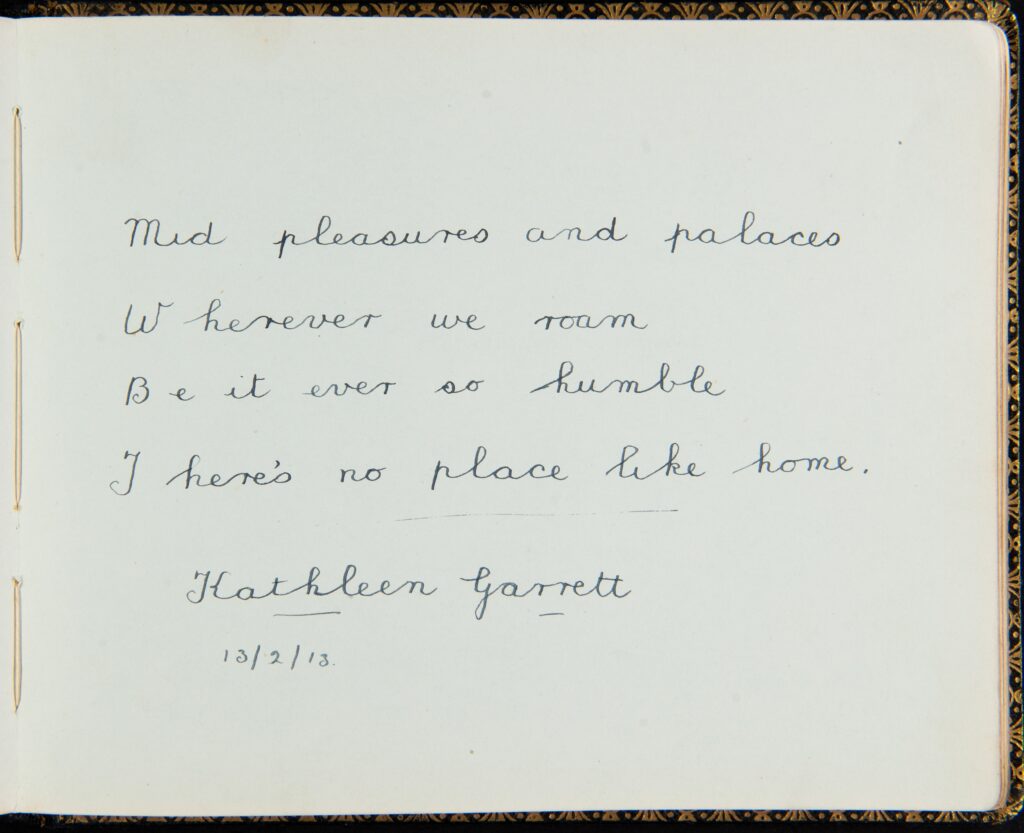 Mid pleasures and palaces
Wherever we roam
Be it ever so humble
There's no place like home.
Kathleen Garrett
13/2/13.